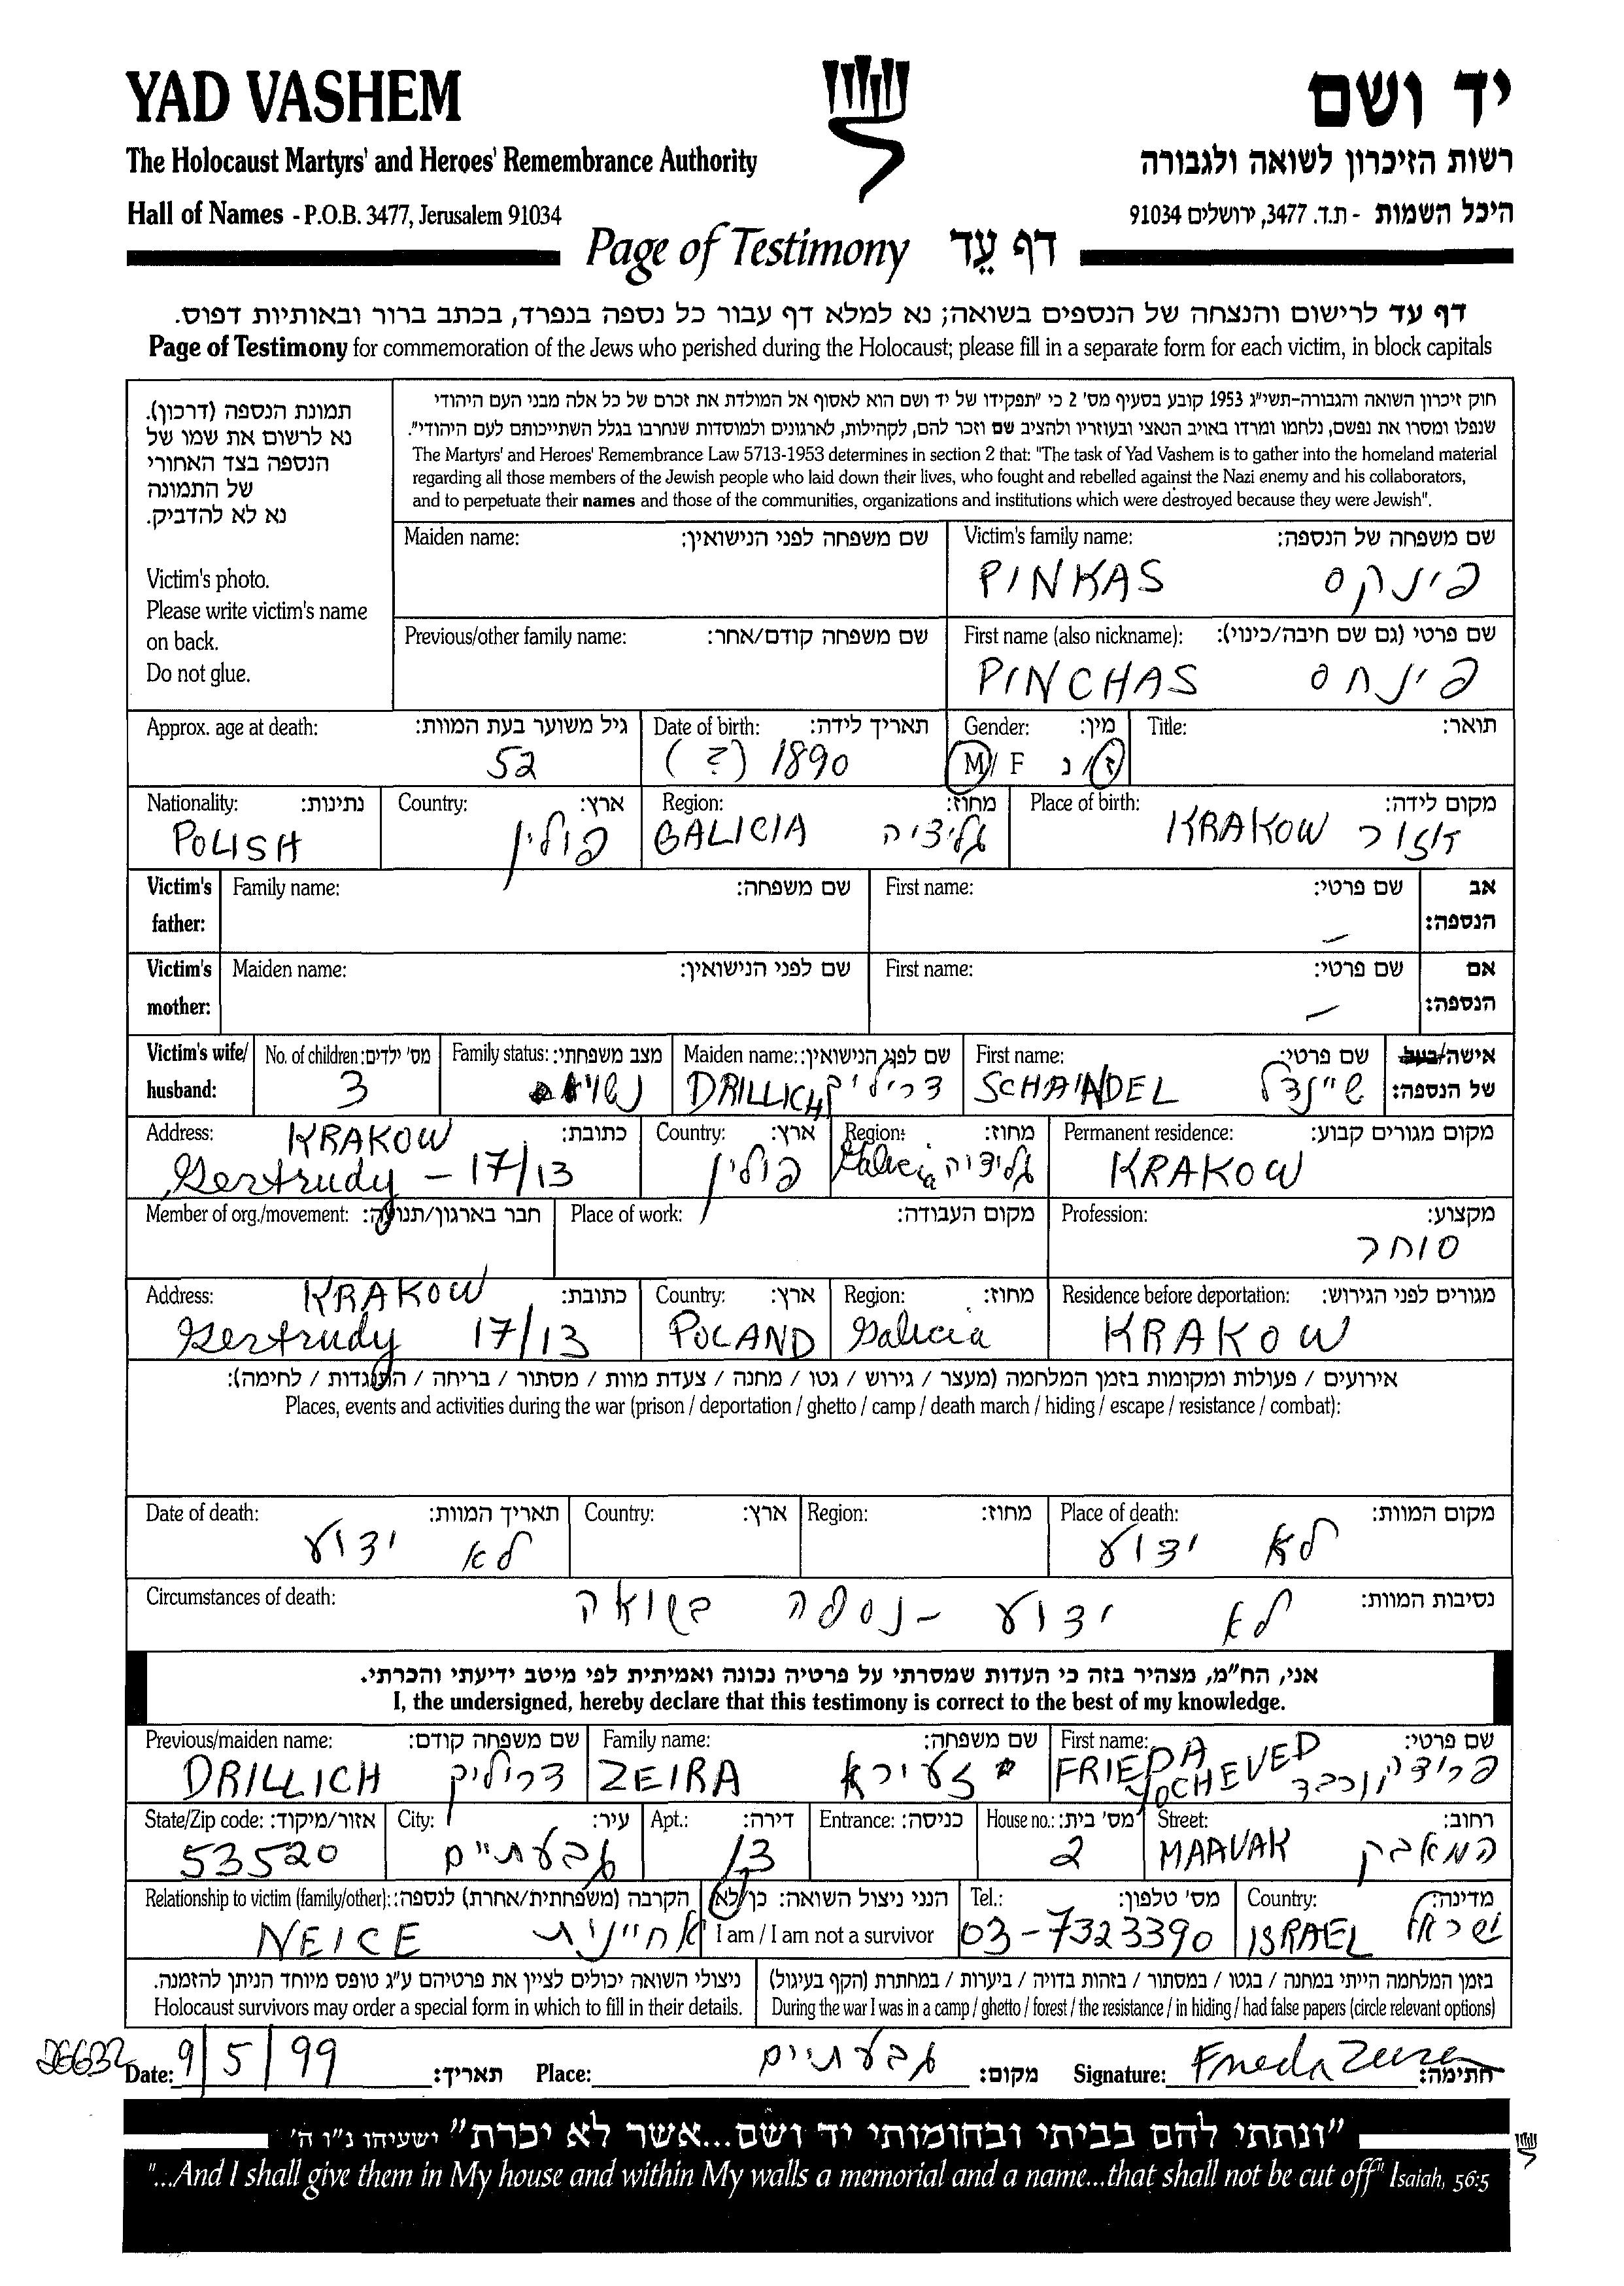 YAD VASHEM
יד ושם
The Holocaust Martyrs' and Heroes' Remembrance Authority
רשות הזיכרון לשואה ולגבורה
Hall of Names - P.O.B. 3477, Jerusalem 91034
היכל השמות - ת.ד. 3477, ירושלים 91034
Page of Testimony דף עֵד
דף עד לרישום והנצחה של הנספים בשואה; נא למלא דף עבור כל נספה בנפרד, בכתב ברור ובאותיות דפוס.
Page of Testimony for commemoration of the Jews who perished during the Holocaust; please fill in a separate form for each victim, in block capitals
תמונת הנספה (דרכון).
נא לרשום את שמו של
הנספה בצד האחורי
של התמונה
נא לא להדביק.
Victim's photo.
Please write victim's name
on back.
Do not glue.
חוק זיכרון השואה והגבורה-תשי"ג 1953 קובע בסעיף מס' 2 כי "תפקידו של יד ושם הוא לאסוף אל המולדת את זכרם של כל אלה מבני העם היהודי
שנפלו ומסרו את נפשם, נלחמו ומרדו באויב הנאצי ובעוזריו ולהציב שם וזכר להם, לקהילות, לארגונים ולמוסדות שנחרבו בגלל השתייכותם לעם היהודי".
The Martyrs' and Heroes' Remembrance Law 5713-1953 determines in section 2 that: "The task of Yad Vashem is to gather into the homeland material
regarding all those members of the Jewish people who laid down their lives, who fought and rebelled against the Nazi enemy and his collaborators,
and to perpetuate their names and those of the communities, organizations and institutions which were destroyed because they were Jewish".
Maiden name: שם משפחה לפני הנישואין:
Victim's family name: שם משפחה של הנספה:
PINKAS פינקס
Previous/other family name: שם משפחה קודם/אחר:
First name (also nickname): שם פרטי (גם שם חיבה/כינוי):
PINCHAS פינחס
Approx. age at death: גיל משוער בעת המוות:
52
Date of birth: תאריך לידה:
(?) 1890
Gender: מין:
M / F ז/נ
Title: תואר:
Nationality: נתינות:
POLISH
Country: ארץ:
פולין
Region: מחוז:
GALICIA גליציה
Place of birth: מקום לידה:
KRAKOW
Victim's father:
Family name: שם משפחה:
First name: שם פרטי:
אב הנספה:
–
Victim's mother:
Maiden name: שם לפני הנישואין:
First name: שם פרטי:
אם הנספה:
–
Victim's wife/ husband:
No. of children: מס' ילדים:
3
Family status: מצב משפחתי:
נשוי
Maiden name: שם לפני הנישואין:
DRILLICH דריליך
First name: שם פרטי:
SCHAINDEL שיינדל
אישה/בעל של הנספה:
Address: כתובת:
KRAKOW
Gertrudy – 17/13
Country: ארץ:
פולין
Region: מחוז:
Galicia גליציה
Permanent residence: מקום מגורים קבוע:
KRAKOW
Member of org./movement: חבר בארגון/תנועה:
Place of work: מקום העבודה:
Profession: מקצוע:
סוחר
Address: כתובת:
KRAKOW
Gertrudy 17/13
Country: ארץ:
POLAND
Region: מחוז:
Galicia
Residence before deportation: מגורים לפני הגירוש:
KRAKOW
אירועים / פעולות ומקומות בזמן המלחמה (מעצר / גירוש / גטו / מחנה / צעדת מוות / מסתור / בריחה / התנגדות / לחימה):
Places, events and activities during the war (prison / deportation / ghetto / camp / death march / hiding / escape / resistance / combat):
Date of death: תאריך המוות:
לא ידוע
Country: ארץ:
Region: מחוז:
Place of death: מקום המוות:
לא ידוע
Circumstances of death: נסיבות המוות:
לא ידוע – נספה בשואה
אני, הח"מ, מצהיר בזה כי העדות שמסרתי על פרטיה נכונה ואמיתית לפי מיטב ידיעתי והכרתי.
I, the undersigned, hereby declare that this testimony is correct to the best of my knowledge.
Previous/maiden name: שם משפחה קודם:
DRILLICH דריליק
Family name: שם משפחה:
ZEIRA זעירא
First name: שם פרטי:
FRIEDA YOCHEVED פרידה יוכבד
State/Zip code: אזור/מיקוד:
53520
City: עיר:
גבעתיים
Apt.: דירה:
13
Entrance: כניסה:
House no.: מס' בית:
2
Street: רחוב:
MAAVAK המאבק
Relationship to victim (family/other): הקרבה (משפחתית/אחרת) לנספה:
NEICE אחיינית
הנני ניצול השואה: כן/לא
I am / I am not a survivor
Tel.: מס' טלפון:
03-7323390
Country: מדינה:
ISRAEL ישראל
ניצולי השואה יכולים לציין את פרטיהם ע"ג טופס מיוחד הניתן להזמנה.
Holocaust survivors may order a special form in which to fill in their details.
בזמן המלחמה הייתי במחנה / בגטו / במסתור / בזהות בדויה / ביערות / במחתרת (הקף בעיגול)
During the war I was in a camp / ghetto / forest / the resistance / in hiding / had false papers (circle relevant options)
26632
Date: 9/5/99 תאריך:
Place: גבעתיים מקום:
Signature: Frieda Zeira חתימה:
"ונתתי להם בביתי ובחומותי יד ושם...אשר לא יכרת" ישעיהו נ"ו ה'
"...And I shall give them in My house and within My walls a memorial and a name...that shall not be cut off" Isaiah, 56:5